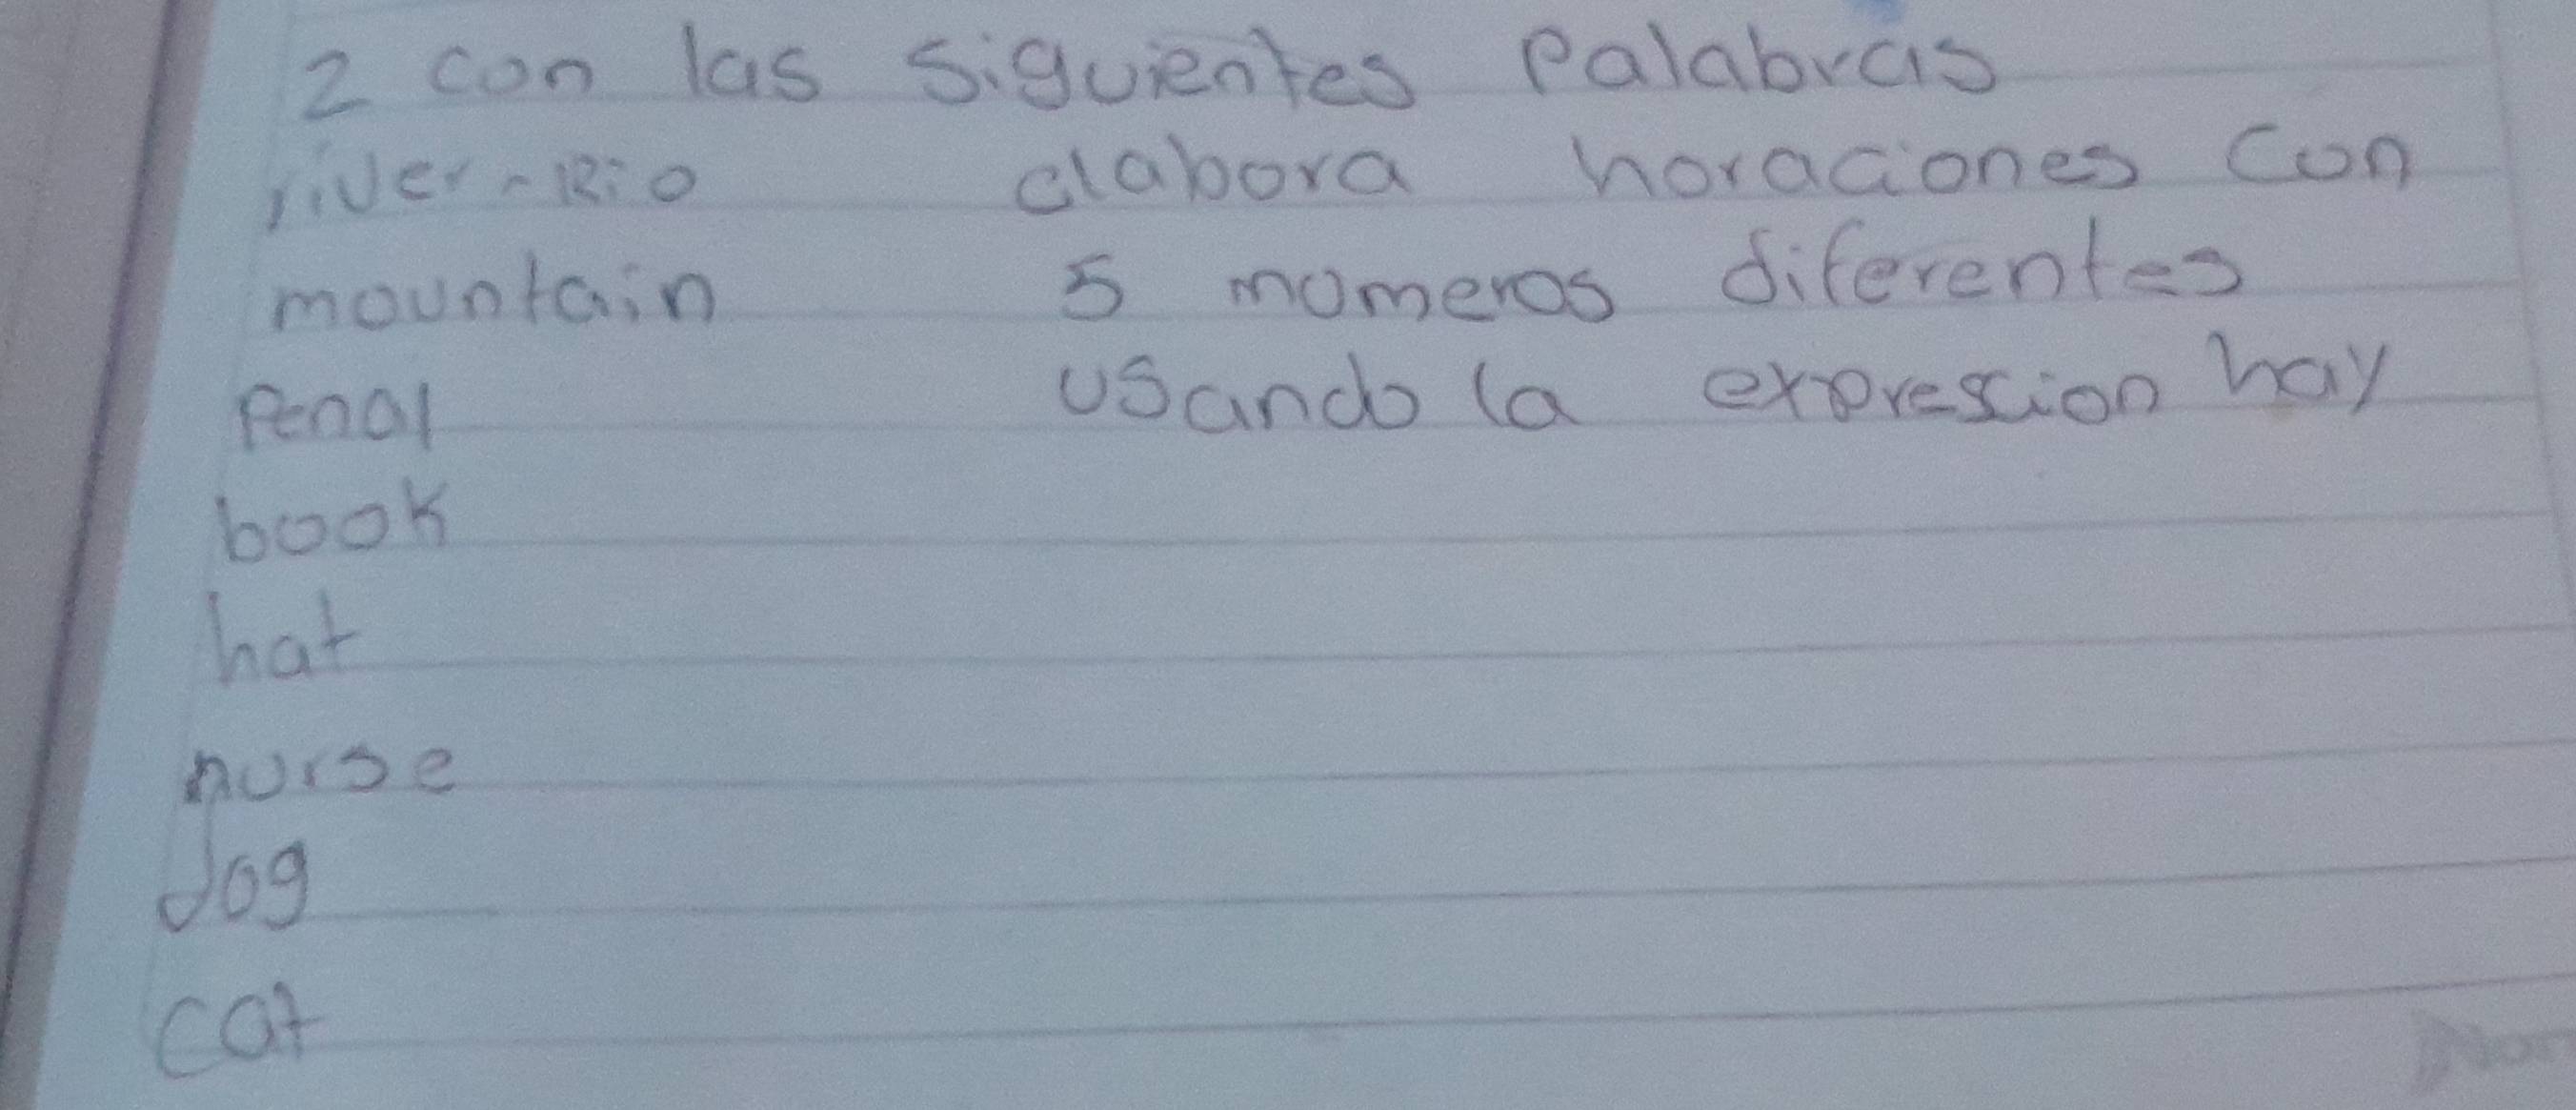 2 con las siguientes Palabras
river - Rio elabora horaciones con
mountain 5 numeros diferentes
Penal usando la expresscion hay
book
hat
nurse
dog
cat